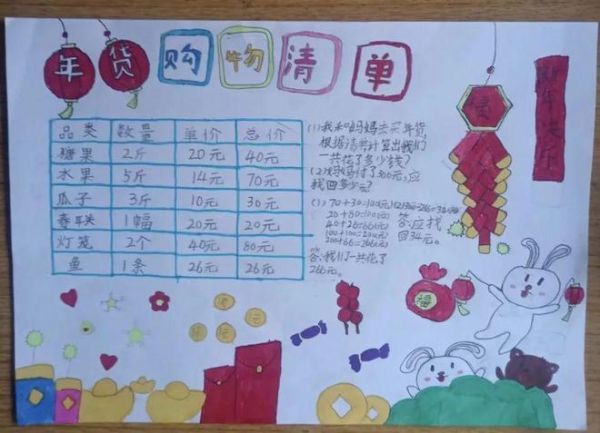 年货购物清单
新年快乐
品类 数量 单价 总价
糖果 2斤 20元 40元
水果 5斤 14元 70元
瓜子 3斤 10元 30元
春联 1幅 20元 20元
灯笼 2个 40元 80元
鱼 1条 26元 26元
(1)我和妈妈去买年货,
根据清单计算出我们
一共花了多少钱?
(2)妈妈付了300元,应
找回多少元?
(1) 70+30=100(元)
20+80=100(元)
40+26=66(元)
100+100=200(元)
200+66=266(元)
答:我们一共花了
266元。
答:应找
回34元。
福